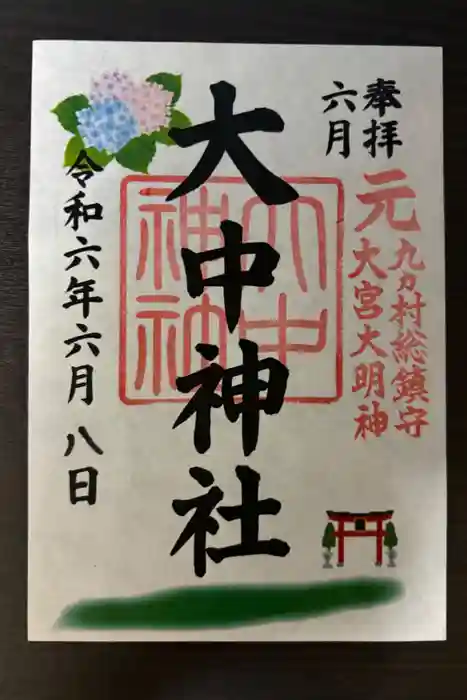 奉拝
六月
元
九ヵ村総鎮守
大宮大明神
大中神社
大中
神社
令和六年六月八日